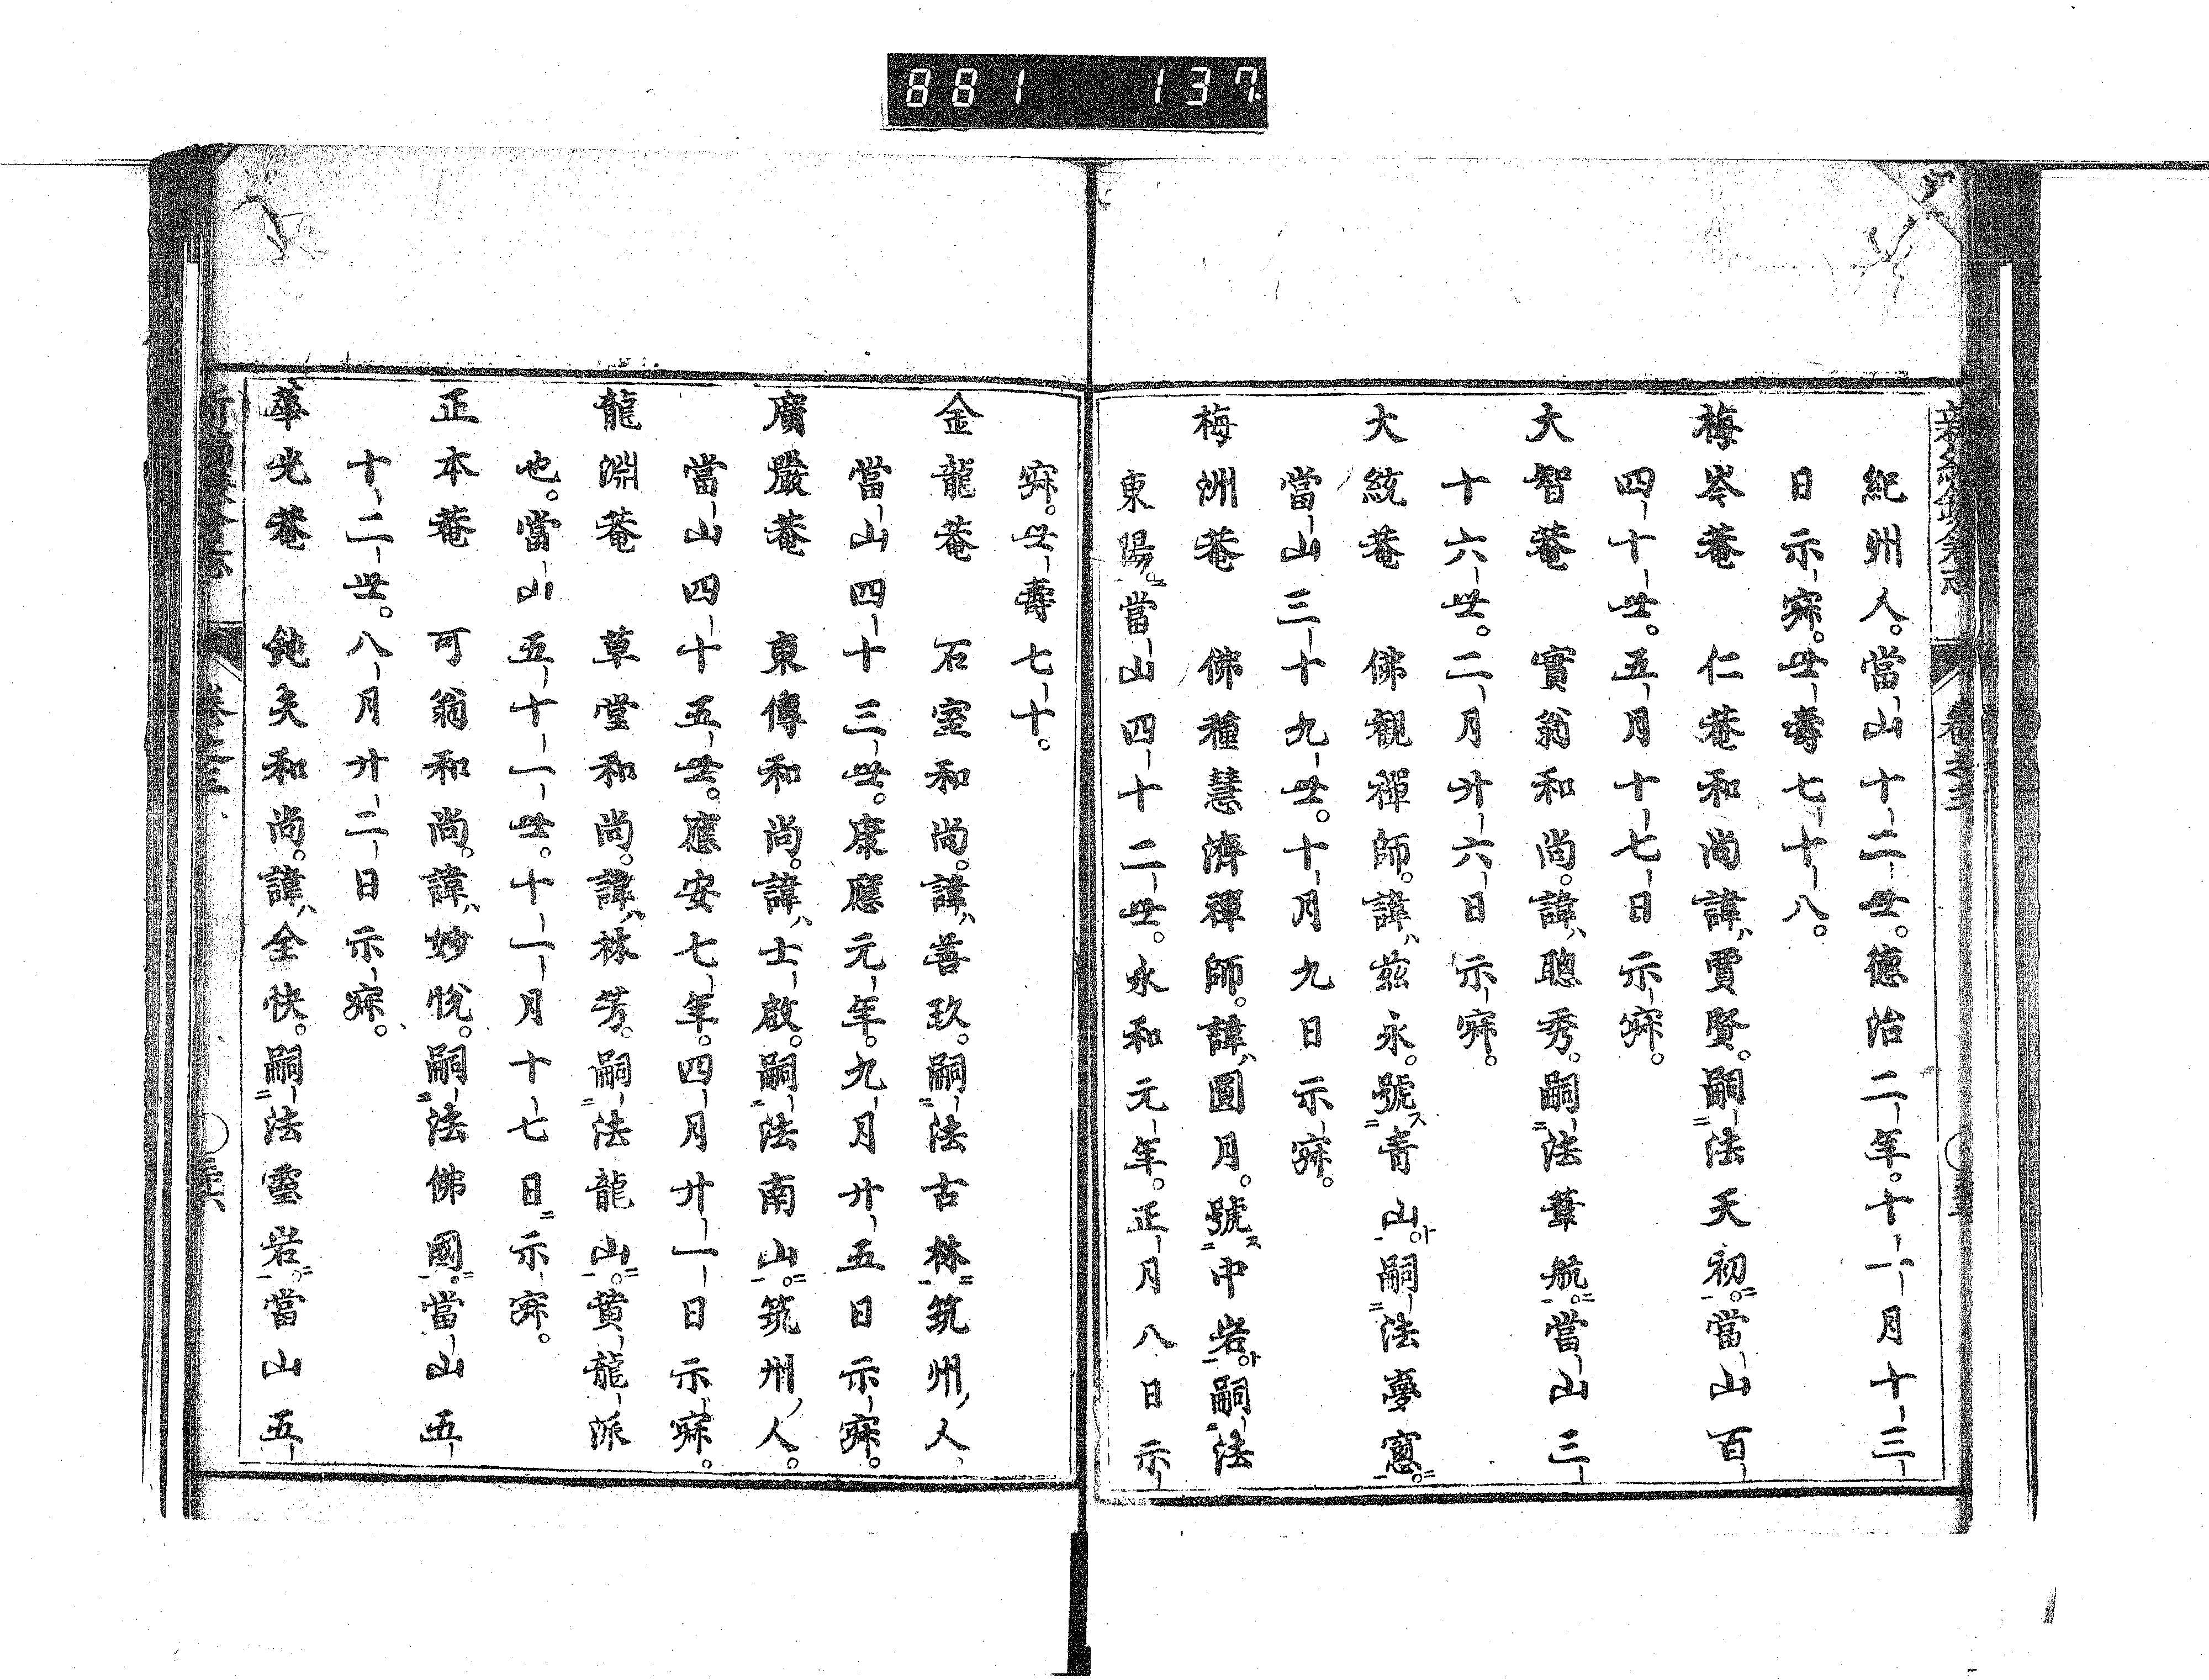 881 137
紀州人。當山十二世。德治二年。十一月十三
日示寂。世壽七十八。
梅岑菴 仁菴和尚諱ハ賈賢。嗣法天初。當山百
四十世。五月十七日示寂。
大智菴 實翁和尚。諱ハ聰秀。嗣法葦航。當山三
十六世。二月廿六日示寂。
大統菴 佛觀禪師。諱ハ茲永。號ス青山ト。嗣法夢窓。
當山三十九世。十月九日示寂。
梅洲菴 佛種慧濟禪師。諱ハ圓月。號ス中岩ト。嗣法
東陽。當山四十二世。永和元年。正月八日示
寂。世壽七十。
金龍菴 石室和尚。諱ハ善玖。嗣法古林。筑州人
當山四十三世。康應元年。九月廿五日示寂。
廣嚴菴 東傳和尚。諱ハ士啟。嗣法南山。筑州人。
當山四十五世。應安七年。四月廿一日示寂。
龍淵菴 草堂和尚。諱ハ林芳。嗣法龍山。黄龍派
也。當山五十一世。十一月十七日示寂。
正本菴 可翁和尚。諱ハ妙悅。嗣法佛國。當山五
十二世。八月廿二日示寂。
華光菴 鈍夫和尚。諱ハ全快。嗣法靈岩。當山五
卷之三